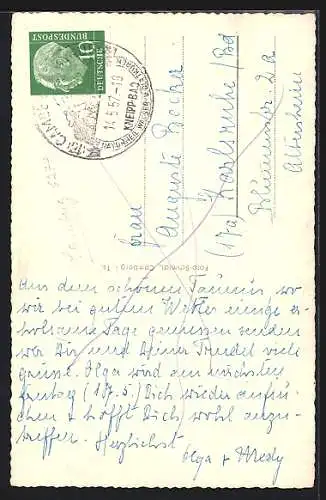 DEUTSCHE
BUNDESPOST
10
CAMBERG
KNEIPP-BAD
14.5.57-18
Frau
Auguste Becker
(17a) Karlsruhe/Bd
Blumenstr. 2a
Altersheim
Foto-Schmidt, Camberg i. Ts.
Aus dem schönen Taunus wo
wir bei gutem Wetter einige er-
holsame Tage geniessen senden
wir Dir und Deiner Trudel viele
Grüsse. Olga wird am nächsten
Freitag (17.5.) Dich wieder aufsu-
chen + hofft Dich wohl anzu-
treffen. Herzlichst
Olga +